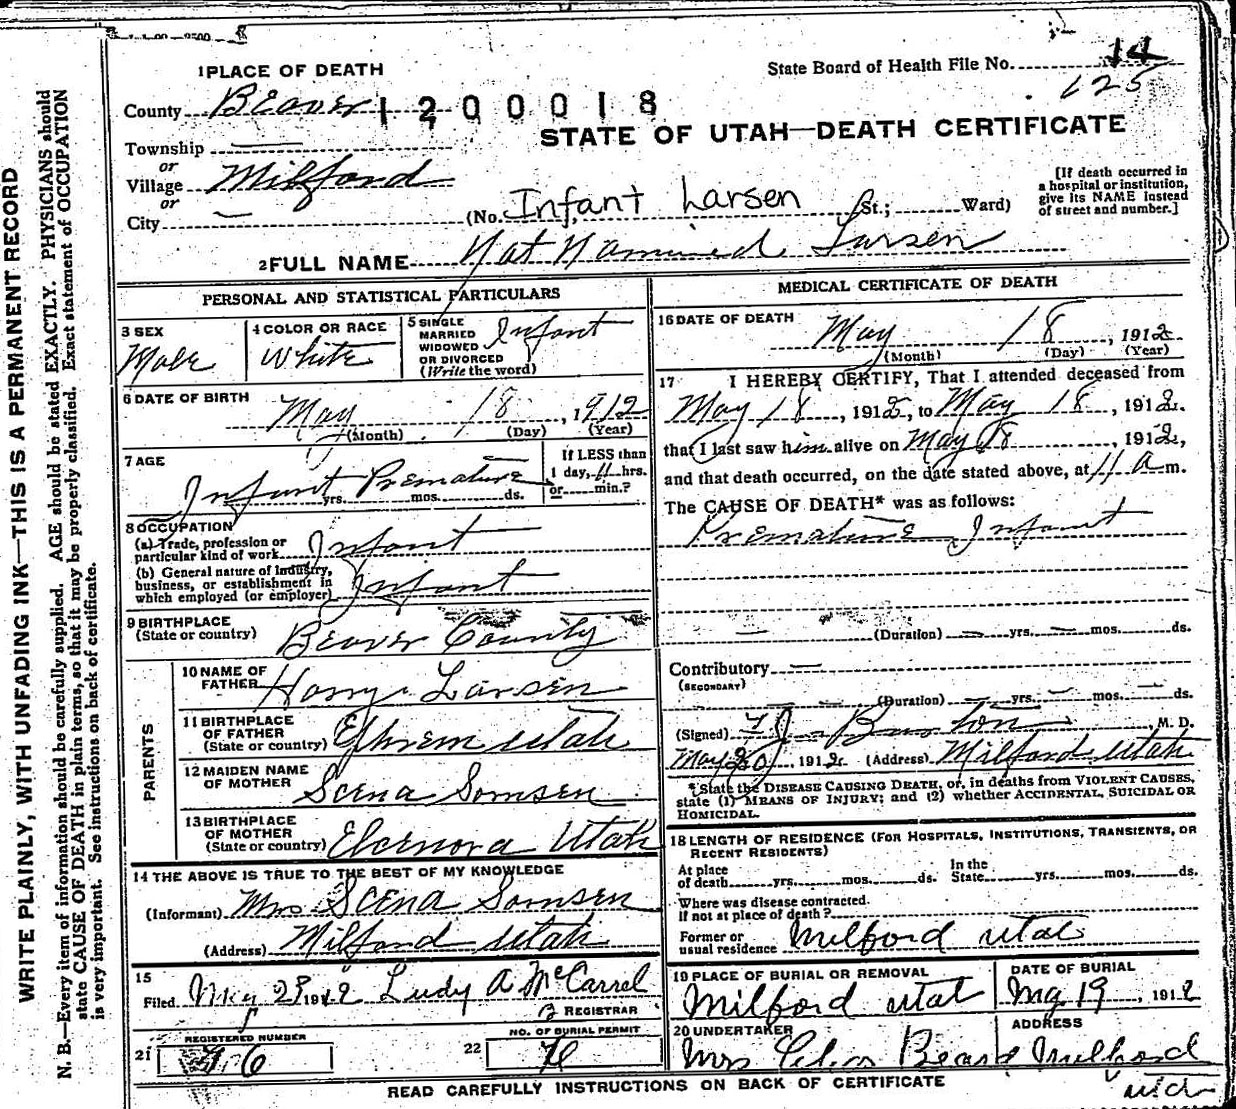 1 PLACE OF DEATH
State Board of Health File No. 14
125
County Beaver 1200018
STATE OF UTAH—DEATH CERTIFICATE
Township
or
Village Milford
or
City
(No. Infant Larsen St.; Ward)
[If death occurred in
a hospital or institution,
give its NAME instead
of street and number.]
2 FULL NAME Not Nammed Larsen
PERSONAL AND STATISTICAL PARTICULARS
3 SEX
Male
4 COLOR OR RACE
White
5 SINGLE
MARRIED
WIDOWED
OR DIVORCED
(Write the word)
Infant
6 DATE OF BIRTH
May 18, 1912
(Month) (Day) (Year)
7 AGE
Infant Premature
yrs. mos. ds.
If LESS than
1 day, 11 hrs.
or min.?
8 OCCUPATION
(a) Trade, profession or
particular kind of work Infant
(b) General nature of industry,
business, or establishment in
which employed (or employer) Infant
9 BIRTHPLACE
(State or country) Beaver County
PARENTS
10 NAME OF
FATHER Harry Larsen
11 BIRTHPLACE
OF FATHER
(State or country) Ephrem Utah
12 MAIDEN NAME
OF MOTHER Scena Somsen
13 BIRTHPLACE
OF MOTHER
(State or country) Elernora Utah
14 THE ABOVE IS TRUE TO THE BEST OF MY KNOWLEDGE
(Informant) Mrs Scena Somsen
(Address) Milford Utah
15
Filed May 28 1912 Ludy A McCarrel
REGISTRAR
REGISTERED NUMBER
21 6
NO. OF BURIAL PERMIT
22
MEDICAL CERTIFICATE OF DEATH
16 DATE OF DEATH
May 18, 1912
(Month) (Day) (Year)
17 I HEREBY CERTIFY, That I attended deceased from
May 18, 1912, to May 18, 1912.
that I last saw him alive on May 18, 1912,
and that death occurred, on the date stated above, at 11 a m.
The CAUSE OF DEATH* was as follows:
Premature Infant
(Duration) yrs. mos. ds.
Contributory
(SECONDARY)
(Duration) yrs. mos. ds.
(Signed) M. D.
May 20, 1912 (Address) Milford Utah
*State the DISEASE CAUSING DEATH, or, in deaths from VIOLENT CAUSES,
state (1) MEANS OF INJURY; and (2) whether ACCIDENTAL, SUICIDAL OR
HOMICIDAL.
18 LENGTH OF RESIDENCE (FOR HOSPITALS, INSTITUTIONS, TRANSIENTS, OR
RECENT RESIDENTS)
At place
of death yrs. mos. ds.
In the
State yrs. mos. ds.
Where was disease contracted.
If not at place of death?
Former or
usual residence Milford Utah
19 PLACE OF BURIAL OR REMOVAL
Milford Utah
DATE OF BURIAL
May 19, 1912
20 UNDERTAKER
Mrs Beard
ADDRESS
Milford
Utah
READ CAREFULLY INSTRUCTIONS ON BACK OF CERTIFICATE
WRITE PLAINLY, WITH UNFADING INK—THIS IS A PERMANENT RECORD
N. B.—Every item of information should be carefully supplied. AGE should be stated EXACTLY. PHYSICIANS should
state CAUSE OF DEATH in plain terms, so that it may be properly classified. Exact statement of OCCUPATION
is very important. See instructions on back of certificate.